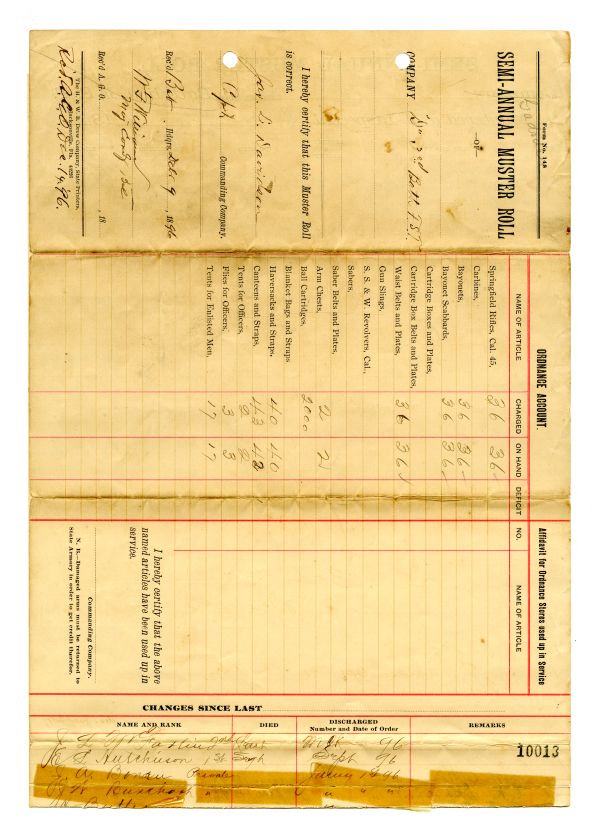 Form No. 148
SEMI-ANNUAL MUSTER ROLL
—OF—
COMPANY "D" 3rd Batt. F.S.T.
I hereby certify that this Muster Roll
is correct.
Jas. S. Davidson
Capt. Commanding Company.
Rec'd Bat. Hdqrs. Dec 9, 1896
Rec'd A. G. O. , 18
The H. & W. B. Drew Company, State Printers,
Jacksonville, Fla.
Rec'd A.G.O. Dec. 14, 96.
ORDNANCE ACCOUNT.
NAME OF ARTICLE CHARGED ON HAND DEFICIT
Springfield Rifles, Cal. 45, 36 36
Carbines,
Bayonets, 36 36
Bayonet Scabbards, 36 36
Cartridge Boxes and Plates,
Cartridge Box Belts and Plates,
Waist Belts and Plates, 36 36
Gun Slings,
S. & W. Revolvers, Cal.,
Sabers,
Saber Belts and Plates,
Arm Chests, 2 2
Ball Cartridges, 2000
Blanket Bags and Straps
Haversacks and Straps, 40 40
Canteens and Straps, 42 42
Tents for Officers, 2 2
Flies for Officers, 3 3
Tents for Enlisted Men, 17 17
Affidavit for Ordnance Stores used up in Service
NO. NAME OF ARTICLE
I hereby certify that the above
named articles have been used up in
service.
Commanding Company.
N. B.—Damaged arms must be returned to
State Armory in order to get credit therefor.
CHANGES SINCE LAST
NAME AND RANK DIED DISCHARGED REMARKS
Number and Date of Order
10013
96
Hutchison 1st Sergt Sept 96
Private 96
" " " "